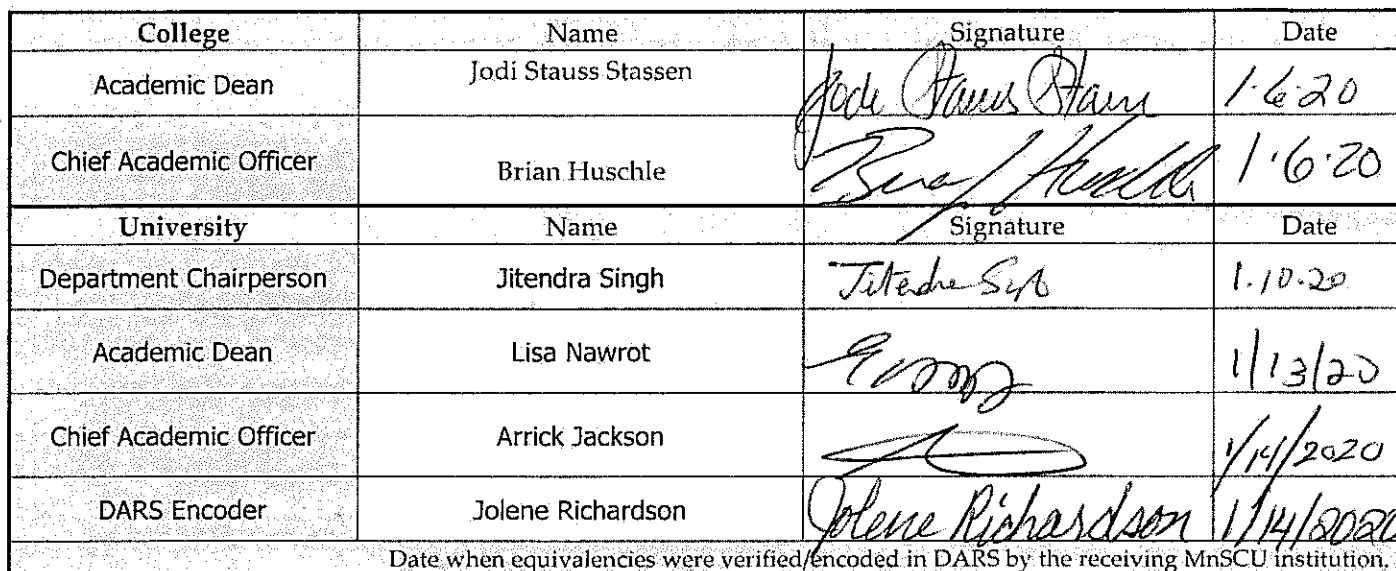 College Name Signature Date
Academic Dean Jodi Stauss Stassen Jodi Stauss 1·6·20
Chief Academic Officer Brian Huschle Huschle 1·6·20
University Name Signature Date
Department Chairperson Jitendra Singh 1.10.20
Academic Dean Lisa Nawrot 1/13/20
Chief Academic Officer Arrick Jackson 1/14/2020
DARS Encoder Jolene Richardson Jolene Richardson 1/14/2020
Date when equivalencies were verified/encoded in DARS by the receiving MnSCU institution.